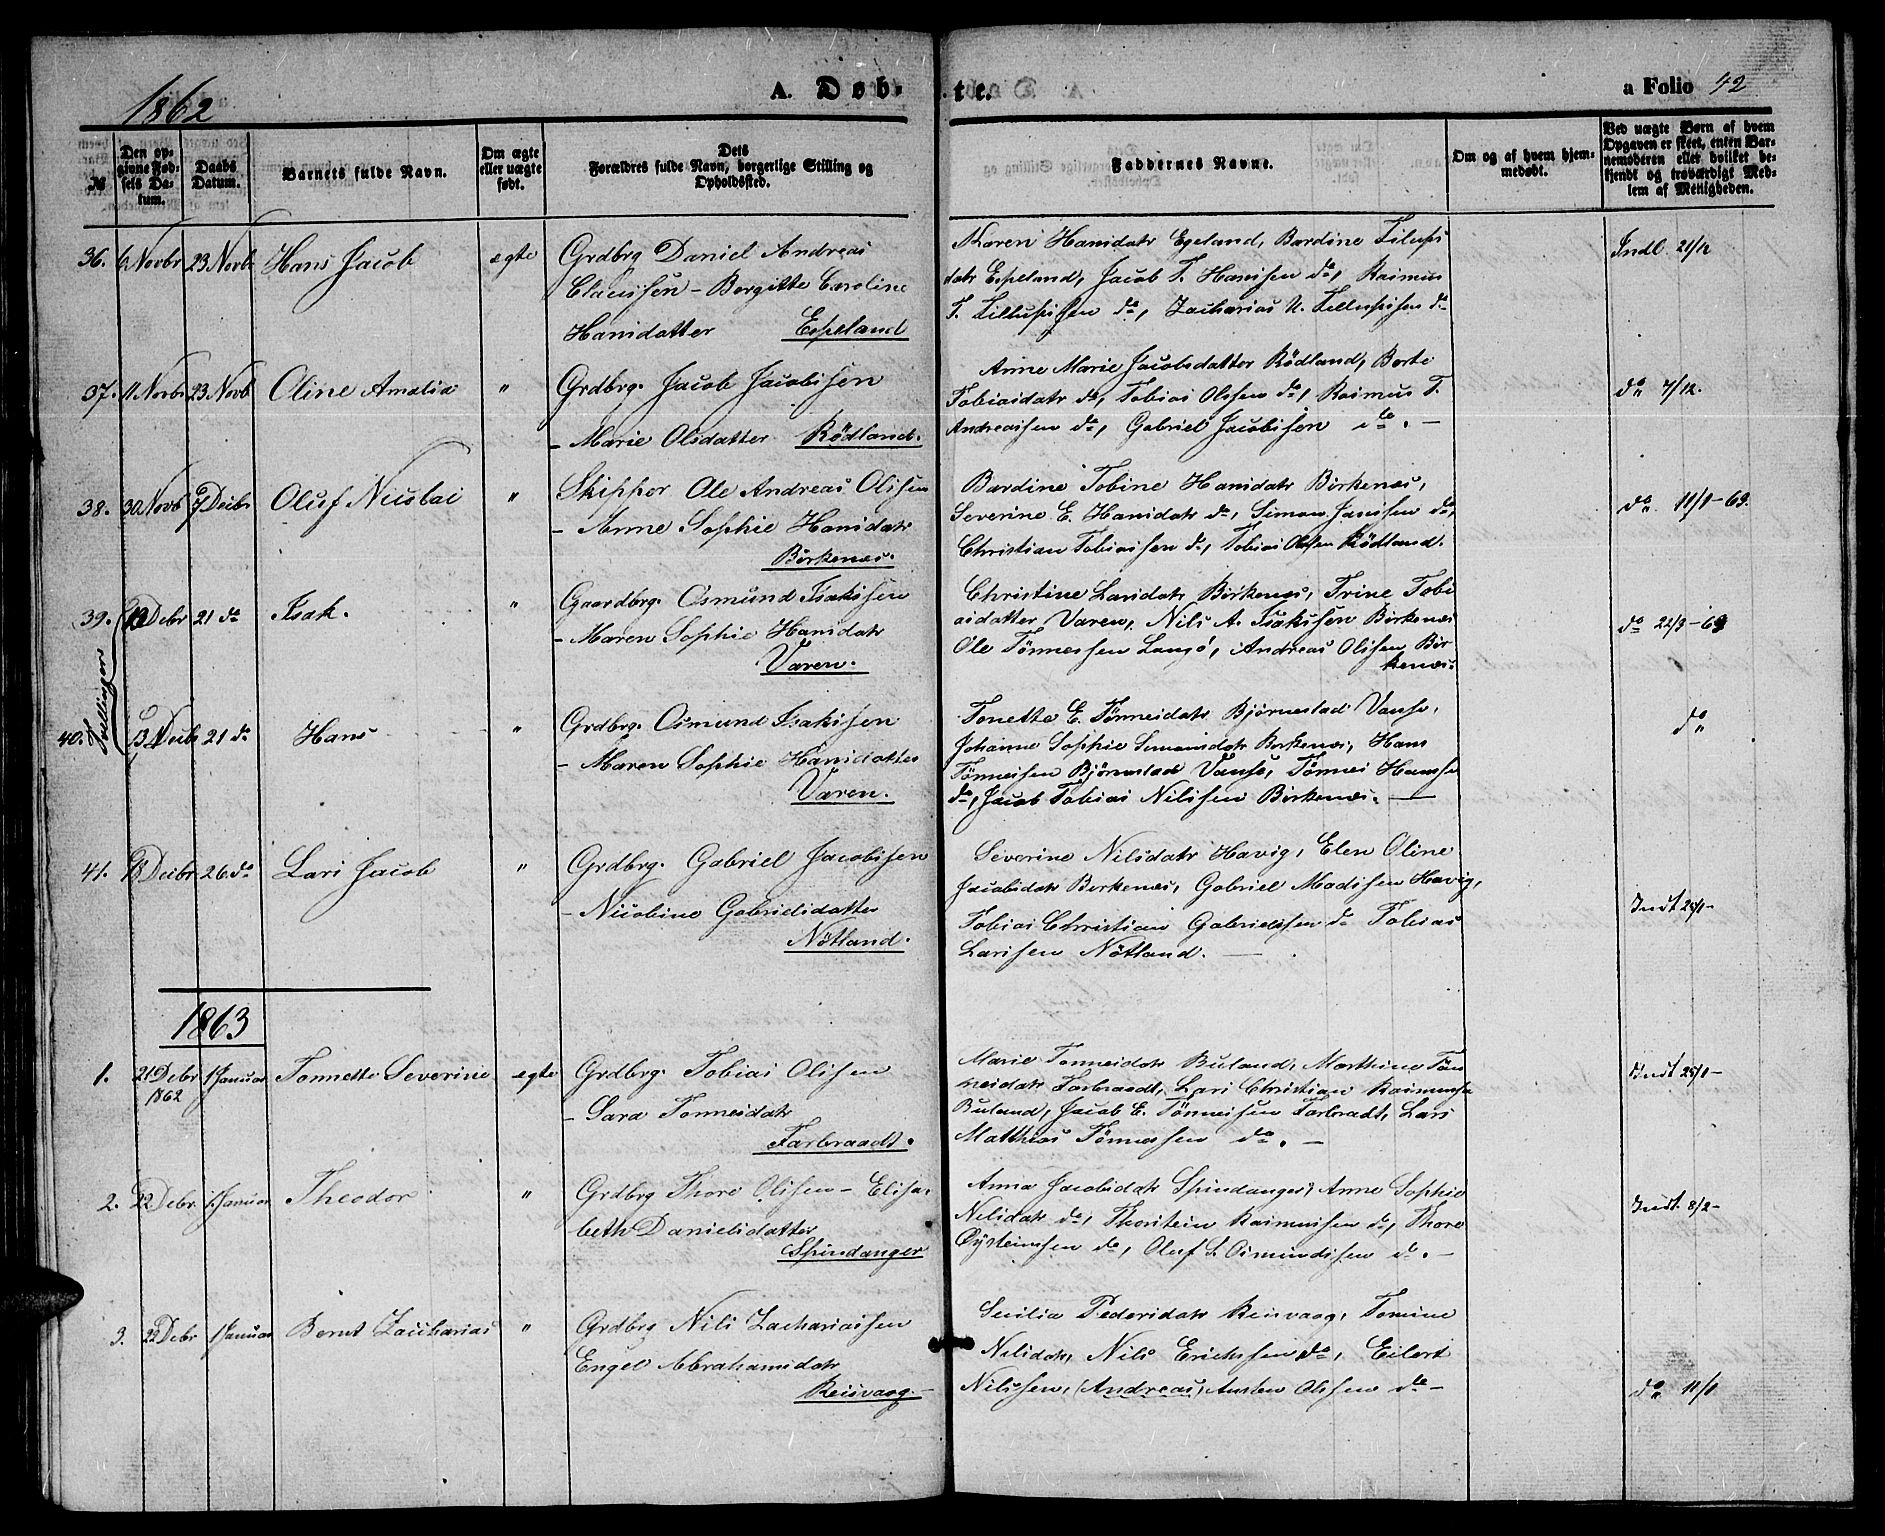 1862
A. Døb-
te.
a Folio 42
№
Den op-
givne Fød-
sels Da-
tum.
Daabs
Datum.
Barnets fulde Navn.
Om ægte
eller uægte
født.
Dets
Forældres fulde Navn, borgerlige Stilling og
Opholdssted.
Faddernes Navne.
Om og af hvem hjem-
medøbt.
Ved uægte Børn af hvem
Opgaven er skeet, enten Bar-
nemoderen eller hvilket be-
kjendt og troværdigt Med-
lem af Menigheden.
36. 6 Novbr 23 Novb Hans Jacob ægte Grdbrg Daniel Andreas
Claussen - Borgitte Caroline
Hansdatter Espeland
Karen Hansdatr Egeland, Bardine Tilufs
datr Espeland, Jacob T. Hanssen do, Rasmus
T. Tillufssen do, Zacharias N. Tellufssen do
Indl. 21/12
37. 11 Novbr 23 Novb Oline Amalia " Grdbrg. Jacob Jacobssen
- Marie Olsdatter Rødland.
Anne Marie Jacobsdatter Rødland, Berte
Tobiasdatr do, Tobias Olssen do, Rasmus T.
Andreassen do, Gabriel Jacobssen do. -
do 7/12.
38. 30 Novb 7 Decbr Oluf Nicolai " Skipper Ole Andreas Olssen
- Anne Sophie Hansdatr
Birkenæs.
Bardine Tobine Hansdatr Birkenæs,
Severine E. Hansdatr do, Simon Janssen do,
Christian Tobiassen do, Tobias Olssen Rødland.
do 11/1-63.
Tvillinger
39. 13 Debr 21 do Isak. " Gaardbrg. Osmund Isakssen
- Maren Sophie Hansdatr
Varen.
Christine Larsdatr Birkenæs, Trine Tobi
asdatter Varen, Nils A. Isakssen Birkenæs
Ole Tønnessen Langø, Andreas Olssen Bir
kenæs.
do 22/3-63
40. 13 Decbr 21 do Hans " Grdbrg. Osmund Isakssen
- Maren Sophie Hansdatter
Varen.
Tonette E. Tønnesdatr Bjørnestad Vanse,
Johanne Sophie Simonsdatr Berkenæs, Hans
Tønnessen Bjørnestad Vanse, Tønnes Hanssen
do, Jacob Tobias Nilssen Birkenæs. -
do
41. 18 Decbr 26. do Lars Jacob " Grdbrg. Gabriel Jacobssen
- Nicobine Gabrielsdatter
Nøtland.
Severine Nilsdatr Havig, Elen Oline
Jacobsdatr Berkenæs, Gabriel Madssen Havig,
Tobias Christian Gabrielssen do Tobias
Larssen Nøtland. -
Indt 25/1-
1863
1. 21 Debr 1 Januar Tonnette Severine ægte Grdbrg. Tobias Olssen
1862
- Sara Tonnesdatr
Farbraadt.
Marie Tonnesdatr Buland, Marthine Tøn
nesdatr Farbraadt, Lars Christian Rasmussen
Buland, Jacob E. Tønnessen Farbradt, Lars
Matthias Tønnessen do. -
Indt 25/1-
2. 22 Debr 1 Januar Theodor " Grdbrg Thore Olssen - Elisa-
beth Danielsdatter
Spindanger
Anna Jacobsdatr Spindanger, Anne Sophie
Nilsdatr do, Thorstein Rasmussen do, Thore
Øysteinssen do, Oluf S. Osmundssen do. -
Indt. 8/2-
3. 22 Debr 1 Januar Bernt Zacharias " Grdbrg Nils Zachariassen
Engel Abrahamsdatr
Reisvaag -
Secilia Pedersdatr Reisvaag, Tomine
Nilsdatr, Nils Erichssen do, Eilert
Nilssen, (Andreas) Austen Olssen do -
do 11/1